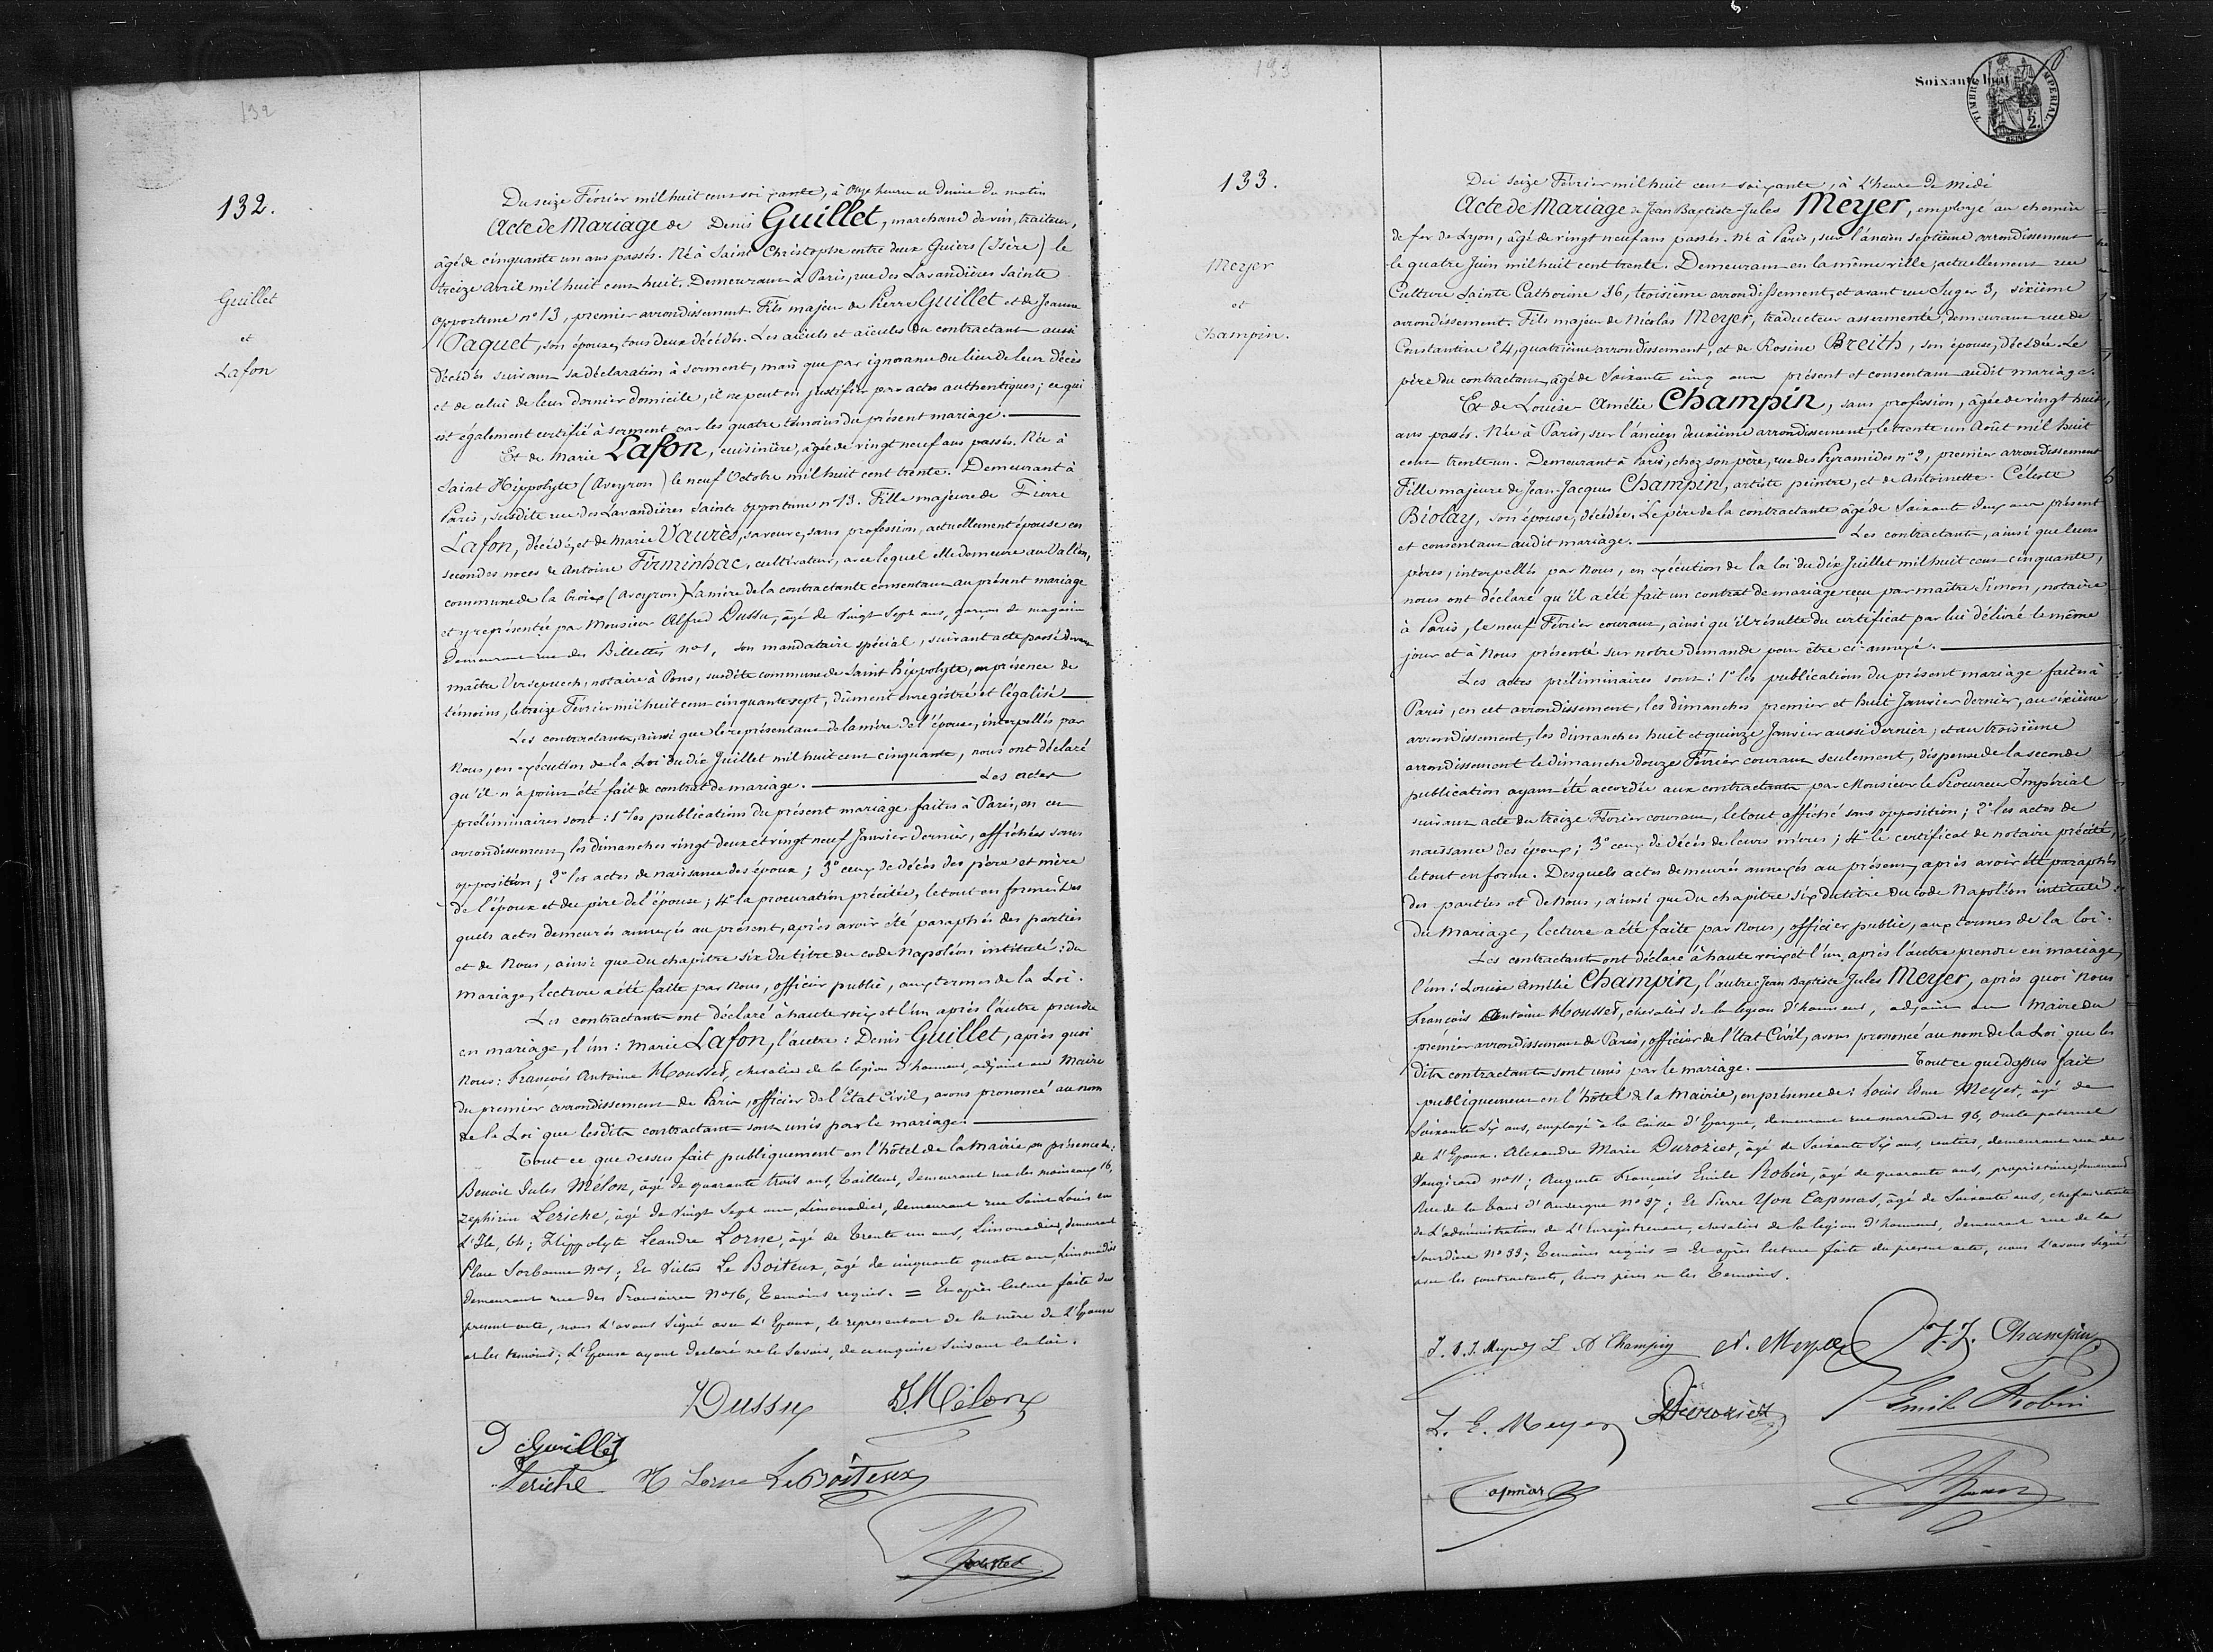 132
132.
Guillet
et
Lafon
Du seize Février mil huit cent soixante, à Onze heures et demie du matin
Acte de Mariage de Denis Guillet, marchand de vin, traiteur,
âgé de cinquante un ans passés. Né à Saint Christophe entre deux Guiers (Isère) le
treize avril mil huit cent huit. Demeurant à Paris, rue des Lavandières Sainte
opportune n° 13, premier arrondissement. Fils majeur de Pierre Guillet et de Jeanne
Paquet, son épouse, tous deux décédés. Les aïeuls et aïeules du contractant aussi
décédés suivant sa déclaration à serment, mais que par ignorance du lieu de leur décès
et de celui de leur dernier domicile, il ne peut en justifier par actes authentiques; ce qui
est également certifié à serment par les quatre témoins du présent mariage.
Et de Marie Lafon, cuisinière, âgée de vingt neuf ans passés. Née à
Saint Hippolyte (Aveyron) le neuf Octobre mil huit cent trente. Demeurant à
Paris, susdite rue des Lavandières Sainte opportune n° 13. Fille majeure de Pierre
Lafon, décédé, et de Marie Vaurès, sa veuve, sans profession, actuellement épouse en
secondes noces de Antoine Firminhac, cultivateur, avec lequel elle demeure au Vallon,
commune de la Croix (Aveyron) La mère de la contractante consentant au présent mariage
et y représentée par Monsieur Alfred Dussu, âgé de Vingt Sept ans, garçon de magasin
demeurant rue des Billettes n° 1, son mandataire spécial, suivant acte passé devant
maître Versepuech, notaire à Pons, susdite commune de Saint hippolyte, en présence de
témoins, le treize Février mil huit cent cinquante sept, dûment enregistré et légalisé
Les contractants, ainsi que le représentant de la mère de l'épouse, interpellés par
Nous, en exécution de la Loi du dix Juillet mil huit cent cinquante, nous ont déclaré
qu'il n'a point été fait de contrat de mariage. Les actes
préliminaires sont: 1° les publications du présent mariage faites à Paris, en cet
arrondissement, les dimanches vingt deux et vingt neuf Janvier dernier, affichées sans
opposition; 2° les actes de naissance des époux; 3° ceux de décès des père et mère
de l'époux et du père de l'épouse; 4° la procuration précitée, le tout en forme. Des
quels actes demeurés annexés au présent, après avoir été paraphés des parties
et de Nous, ainsi que du chapitre six du titre du code Napoléon intitulé: du
Mariage, lecture a été faite par Nous, officier public, aux termes de la Loi.
Les contractants ont déclaré à haute voix et l'un après l'autre prendre
en mariage, l'un: Marie Lafon, l'autre: Denis Guillet, après quoi
Nous: François Antoine Mousset, chevalier de la légion d'honneur, adjoint au Maire
du premier arrondissement de Paris, officier de l'Etat Civil, avons prononcé au nom
de la Loi que lesdits contractants sont unis par le mariage.
Tout ce que dessus fait publiquement en l'hôtel de la Mairie en présence de:
Benoit Jules Mélon, âgé de quarante trois ans, Tailleur, demeurant rue des moineaux 16,
Zephirin Leriche, âgé de Vingt Sept ans, Limonadier, demeurant rue Saint Louis en
L'Ile, 64; Hippolyte Leandre Lorne, âgé de Trente un ans, Limonadier, demeurant
Place Sorbonne N° 1; Et Victor Le Boiteux, âgé de cinquante quatre ans, Limonadier
demeurant rue des N° 16, Temoins requis. = Et après lecture faite du
présent acte, nous l'avons Signé avec L'Epoux, le représentant de la mère de L'Epouse
et les témoins; L'Epouse ayant Declaré ne le Savoir, de ce enquise Suivant la loi.
Dussu J. Mélon
D Guillet
Leriche H Lorne Le Boiteux
Mousset
133
Soixante huit
TIMBRE IMPERIAL
2.
133.
Meyer
et
Champin.
Du seize Février mil huit cent soixante, à L'heure de midi
Acte de Mariage de Jean Baptiste Jules Meyer, employé au chemin
de fer de Lyon, âgé de vingt neuf ans passés. Né à Paris, sur l'ancien septième arrondissement
le quatre Juin mil huit cent trente. Demeurant en la même ville, actuellement rue
Culture Sainte Catherine 36, troisième arrondissement, et avant rue Suger 3, sixième
arrondissement. Fils majeur de Nicolas Meyer, traducteur assermenté, demeurant rue de
Constantine 24, quatrième arrondissement, et de Rosine Breith, son épouse, décédée. Le
père du contractant âgé de Soixante cinq ans présent et consentant audit mariage.
Et de Louise Amélie Champin, sans profession, âgée de vingt huit
ans passés. Née à Paris, sur l'ancien deuxième arrondissement, le trente un Août mil huit
cent trente un. Demeurant à Paris, chez son père, rue des Pyramides n° 2, premier arrondissement
Fille majeure de Jean-Jacques Champin, artiste peintre, et de Antoinette Céleste
Biolay, son épouse, décédée. Le père de la contractante âgé de Soixante deux ans présent
et consentant audit mariage. Les contractants, ainsi que leurs
pères, interpellés par Nous, en exécution de la loi du dix Juillet mil huit cent cinquante,
nous ont déclaré qu'il a été fait un contrat de mariage reçu par maître Simon, notaire
à Paris, le neuf Février courant, ainsi qu'il résulte du certificat par lui délivré le même
jour et à Nous présenté sur notre demande pour être ci-annexé.
Les actes préliminaires sont: 1° les publications du présent mariage faites à
Paris, en cet arrondissement, les dimanches premier et huit Janvier dernier, au sixième
arrondissement, les dimanches huit et quinze Janvier aussi dernier, et au troisième
arrondissement le dimanche douze Février courant seulement, dispense de la seconde
publication ayant été accordée aux contractants par Monsieur le Procureur Impérial
suivant acte du treize Février courant, le tout affiché sans opposition; 2° les actes de
naissance des époux; 3° ceux de décès de leurs mères; 4° le certificat de notaire précité,
le tout en forme. Desquels actes demeurés annexés au présent, après avoir été paraphés
des parties et de Nous, ainsi que du chapitre six du titre du code Napoléon intitulé:
du Mariage, lecture a été faite par Nous, officier public, aux termes de la loi.
Les contractants ont déclaré à haute voix et l'un après l'autre prendre en mariage,
l'un: Louise Amélie Champin, l'autre: Jean Baptiste Jules Meyer, après quoi Nous
François Antoine Mousset, chevalier de la légion d'honneur, adjoint au Maire du
premier arrondissement de Paris, officier de l'Etat Civil, avons prononcé au nom de la Loi que les
dits contractants sont unis par le mariage. Tout ce que dessus fait
publiquement en l'hôtel de la Mairie, en présence de: Louis Edme Meyer, âgé de
Soixante Six ans, employé à la Caisse d'Epargne, demeurant rue marcadet 96, oncle paternel
de L'Epoux. Alexandre Marie Duroziez, âgé de Soixante Six ans, rentier, demeurant rue de
Vaugirard n° 11; Auguste François Emile Robin, âgé de quarante ans, propriétaire, demeurant
Rue de la Tour d'Auvergne n° 37; Et Pierre Yon Capmas, âgé de Soixante ans, chef en retraite
de L'administration de L'Enregistrement, chevalier de la légion d'honneur, demeurant rue de la
Sourdière N° 33; Temoins requis = Et après lecture faite du présent acte, nous l'avons Signé
avec les contractants, leurs pères et les Temoins.
J. B. J. Meyer L A Champin N. Meyer J. J. Champin
L. E. Meyer Duroziez Emile Robin
Capmas